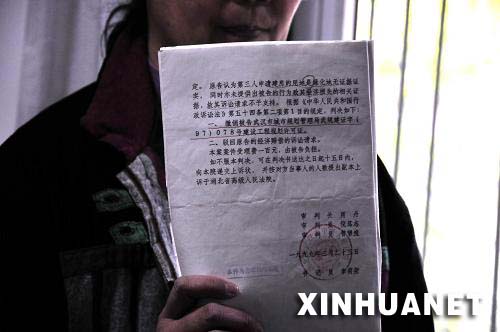 定。原告认为第三人申请建房的是绿化地无证据证
实,同时亦未提供出被告的行为致其经济损失的相关证
据,故其诉讼请求不予支持。根据《中华人民共和国行
政诉讼法》第五十四条第二项第1目的规定,判决如下:
一、撤销被告武汉市城市规划管理局武规建证字(
97)078号建设工程规划许可证。
二、驳回原告的经济赔偿的诉讼请求。
本案案件受理费一百元,由被告负担。
如不服本判决,可在判决书送达之日起十五日内,
向本院递交上诉状,并按对方当事人的人数提出副本上
诉于湖北省高级人民法院。
审判长 周丹
审判员
审判员
一九九九年三月二十三日
书记员
XINHUANET